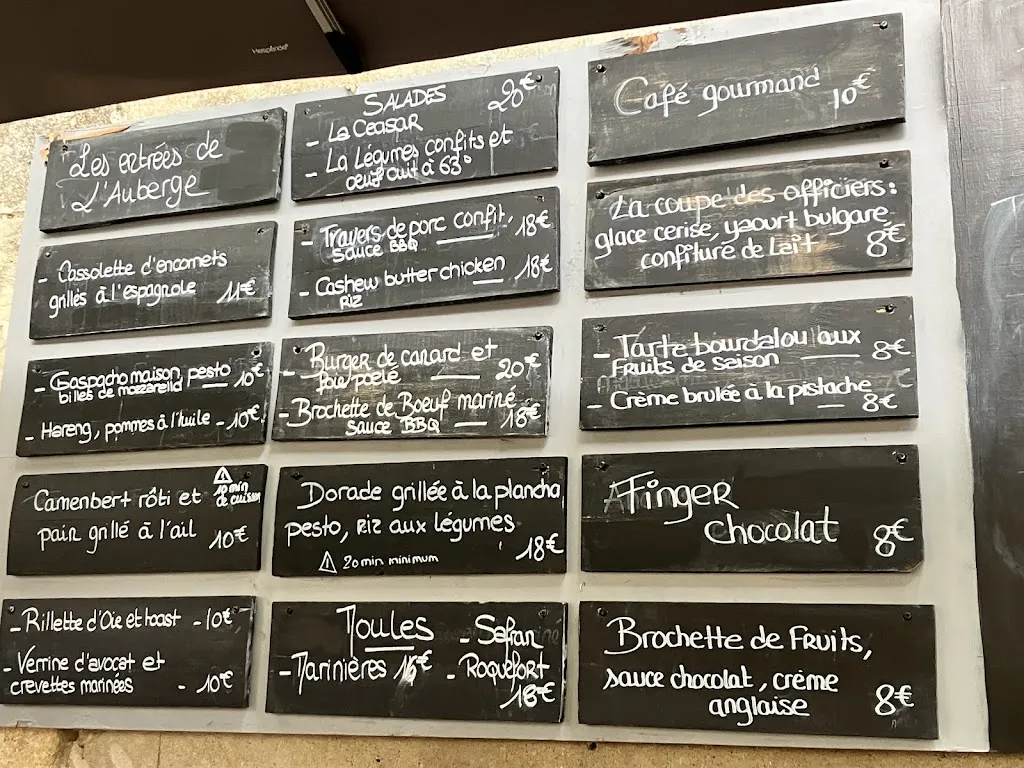 Les entrées de
L'Auberge
- Cassolette d'encornets
grillés à l'espagnole 11€
- Gaspacho maison, pesto
billes de mozzarella 10€
- Hareng, pommes à l'huile - 10€
Camenbert rôti et
⚠ 10 min
de cuisson
pain grillé à l'ail 10€
- Rillette d'Oie et toast - 10€
- Verrine d'avocat et
crevettes marinées - 10€
SALADES 20€
- La Ceasar
- La Légumes confits et
oeuf cuit à 63°
- Travers de porc confit, 18€
sauce BBQ
- Cashew butter chicken 18€
Riz
- Burger de canard et
foie poelé 20€
- Brochette de Boeuf mariné
sauce BBQ 18€
Dorade grillée à la plancha,
pesto, Riz aux légumes
18€
⚠ 20 min minimum
Moules
- Safran
- Marinières 16€
- Roquefort
18€
Café gourmand
10€
La coupe des officiers :
glace cerise, yaourt bulgare,
confiture de Lait 8€
- Tarte bourdalou aux
Fruits de saison 8€
- Crème brulée à la pistache
8€
Finger
chocolat 8€
Brochette de Fruits,
sauce chocolat, crème
anglaise 8€